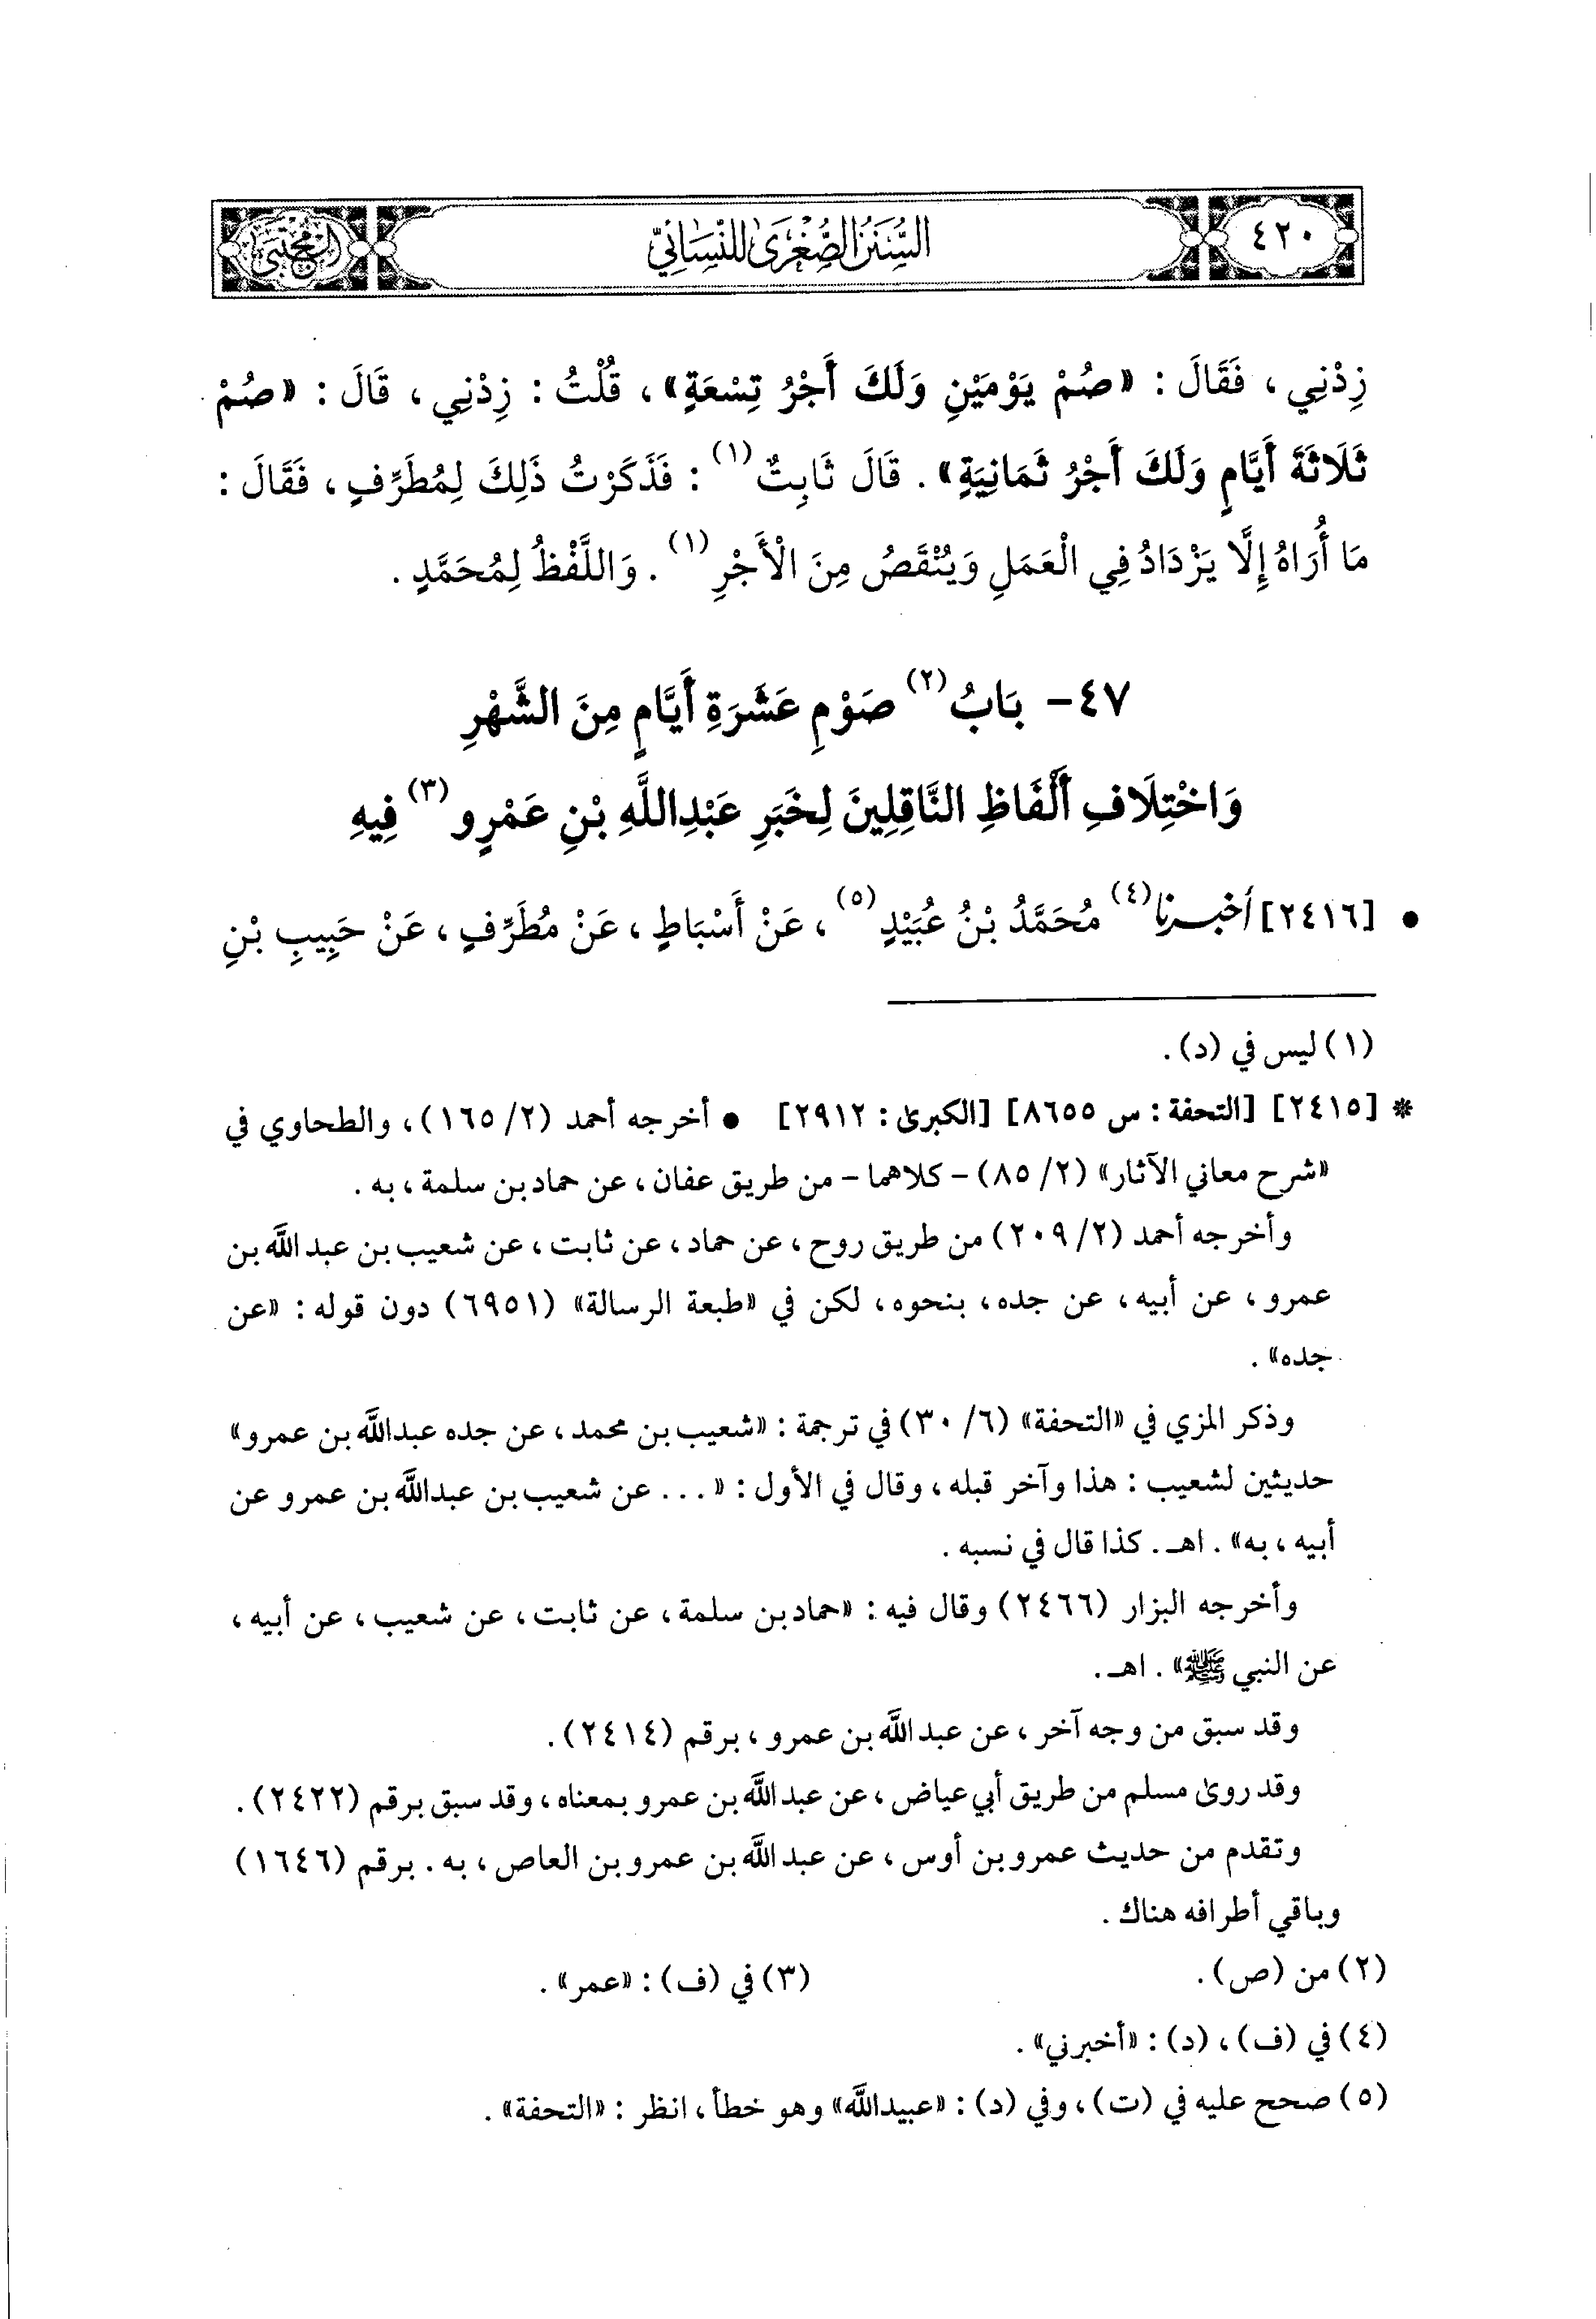 ٤٢٠
السُّنَنُ الصُّغْرَىٰ لِلنَّسَائِيِّ
المجتبى
زِدْنِي ، فَقَالَ : «صُمْ يَوْمَيْنِ وَلَكَ أَجْرُ تِسْعَةٍ» ، قُلْتُ : زِدْنِي ، قَالَ : «صُمْ
ثَلَاثَةَ أَيَّامٍ وَلَكَ أَجْرُ ثَمَانِيَةٍ» . قَالَ ثَابِتٌ (١) : فَذَكَرْتُ ذَلِكَ لِمُطَرِّفٍ ، فَقَالَ :
مَا أُرَاهُ إِلَّا يَزْدَادُ فِي الْعَمَلِ وَيُنْقَصُ مِنَ الْأَجْرِ (١) . وَاللَّفْظُ لِمُحَمَّدٍ .
٤٧- بَابُ (٢) صَوْمِ عَشَرَةِ أَيَّامٍ مِنَ الشَّهْرِ
وَاخْتِلَافِ أَلْفَاظِ النَّاقِلِينَ لِخَبَرِ عَبْدِاللَّهِ بْنِ عَمْرٍو (٣) فِيهِ
• [٢٤١٦] أخبرنا (٤) مُحَمَّدُ بْنُ عُبَيْدٍ (٥) ، عَنْ أَسْبَاطٍ ، عَنْ مُطَرِّفٍ ، عَنْ حَبِيبِ بْنِ
(١) ليس في (د) .
* [٢٤١٥] [التحفة : س ٨٦٥٥] [الكبرىٰ : ٢٩١٢] • أخرجه أحمد (٢/ ١٦٥) ، والطحاوي في
«شرح معاني الآثار» (٢/ ٨٥) - كلاهما - من طريق عفان ، عن حماد بن سلمة ، به .
وأخرجه أحمد (٢/ ٢٠٩) من طريق روح ، عن حماد ، عن ثابت ، عن شعيب بن عبد اللَّه بن
عمرو ، عن أبيه ، عن جده ، بنحوه ، لكن في «طبعة الرسالة» (٦٩٥١) دون قوله : «عن
جده» .
وذكر المزي في «التحفة» (٦/ ٣٠) في ترجمة : «شعيب بن محمد ، عن جده عبداللَّه بن عمرو»
حديثين لشعيب : هذا وآخر قبله ، وقال في الأول : «... عن شعيب بن عبداللَّه بن عمرو عن
أبيه ، به» . اهـ . كذا قال في نسبه .
وأخرجه البزار (٢٤٦٦) وقال فيه : «حماد بن سلمة ، عن ثابت ، عن شعيب ، عن أبيه ،
عن النبي ﷺ» . اهـ .
وقد سبق من وجه آخر ، عن عبد اللَّه بن عمرو ، برقم (٢٤١٤) .
وقد روىٰ مسلم من طريق أبي عياض ، عن عبد اللَّه بن عمرو بمعناه ، وقد سبق برقم (٢٤٢٢) .
وتقدم من حديث عمرو بن أوس ، عن عبد اللَّه بن عمرو بن العاص ، به . برقم (١٦٤٦)
وباقي أطرافه هناك .
(٢) من (ص) .
(٣) في (ف) : «عمر» .
(٤) في (ف) ، (د) : «أخبرني» .
(٥) صحح عليه في (ت) ، وفي (د) : «عبيداللَّه» وهو خطأ ، انظر : «التحفة» .